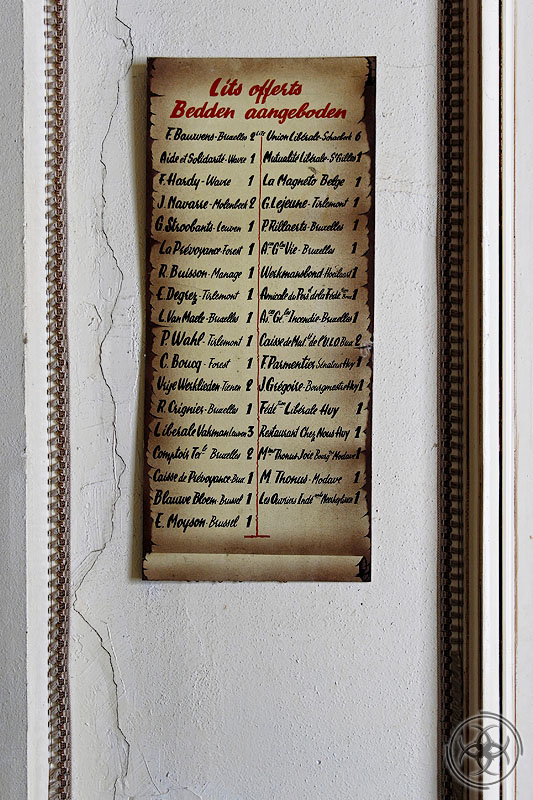 Lits offerts
Bedden aangeboden
F. Bauwens - Bruxelles 2 Lits
Aide et Solidarité - Wavre 1
F. Hardy - Wavre 1
J. Navarre - Molenbeek 2
G. Stroobants - Leuven 1
La Prévoyance - Forest 1
R. Buisson - Manage 1
E. Degrez - Tirlemont 1
L. Van Maele - Bruxelles 1
P. Wahl - Tirlemont 1
C. Boucq - Forest 1
Vrije Werklieden - Tienen 2
R. Crignier - Bruxelles 1
Liberale Vakman Leuven 3
Comptoir Bruxelles 2
Caisse de Prévoyance Brux 1
Blauwe Bloem - Brussel 1
E. Moyson - Brussel 1
Union Libérale - Schaerbeek 6
Mutualité Libérale - St Gilles 1
La Magneto Belge 1
G. Lejeune - Tirlemont 1
P. Rillaerts - Bruxelles 1
Vie - Bruxelles 1
Werkmansbond Hoeilaart 1
Amicale du Pers. de la Fédé 1
Incendie - Bruxelles 1
Caisse de Mut. de l'U.L.O Brux 2
F. Parmentier Sénateur Huy 1
J. Grégoire - Bourgmestre Huy 1
Libérale Huy 1
Restaurant Chez Nous Huy 1
Mme Thonus Joie Modave 1
M Thonus - Modave 1
Les Ouvriers Indé 1